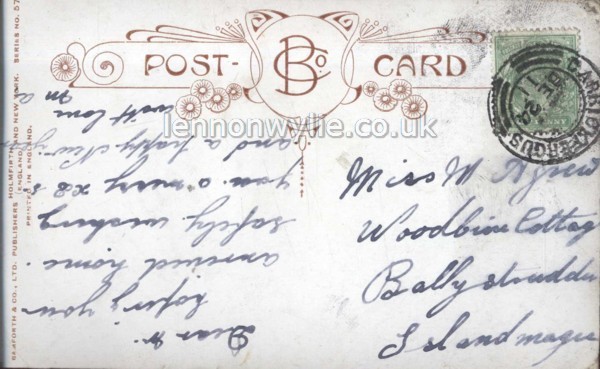 POST-CARD
B Co
lennonwylie.co.uk
CARRICKFERGUS
DE 24
11
Miss M Agnew
Woodbine Cottag
Ballystrudder
Islandmagee
Dear M.
hopeing you
arrived home
safely wishing
you a merry xmas
and a happy New yea
with love
BAMFORTH & CO., LTD. PUBLISHERS
HOLMFIRTH (ENGLAND) AND NEW YORK. SERIES NO. 57
PRINTED IN ENGLAND.